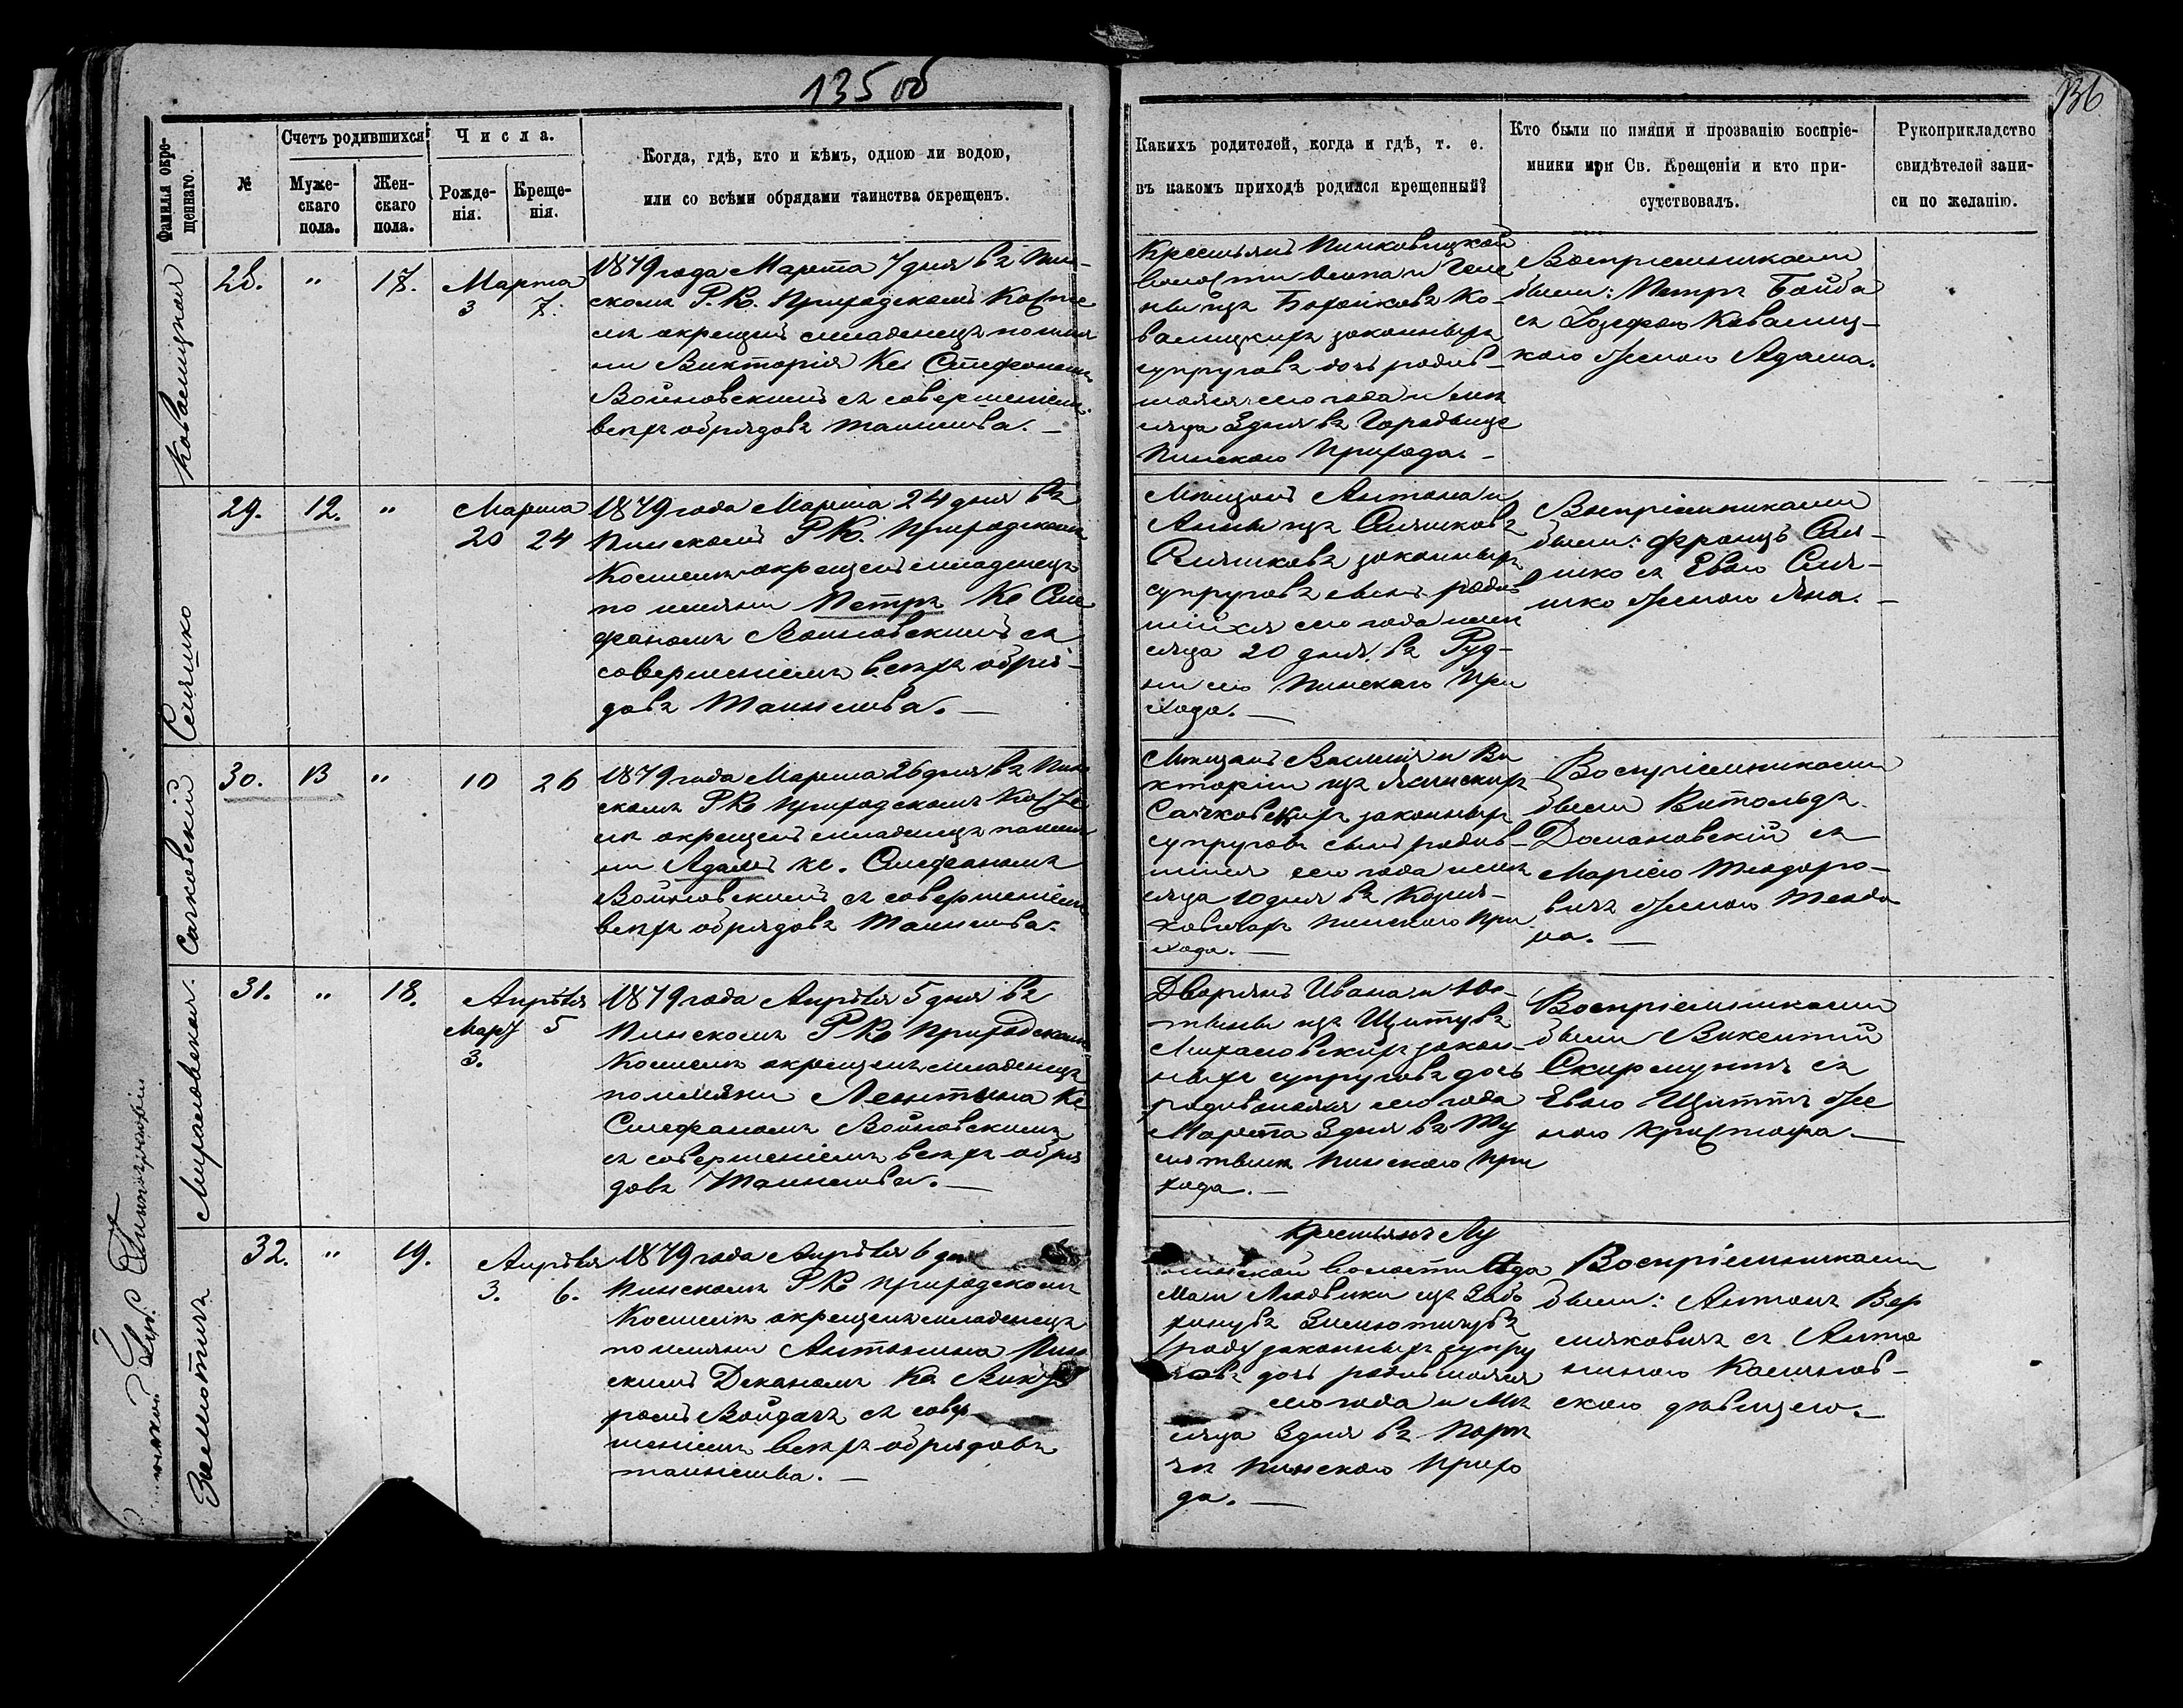 135 об
136
Фамилія окре-
щеннаго.
№
Счетъ родившихся
Муже-
скаго
пола.
Жен-
скаго
пола.
Числа.
Рожде-
нія.
Креще-
нія.
Когда, гдѣ, кто и кѣмъ, одною ли водою,
или со всѣми обрядами таинства окрещенъ.
Какихъ родителей, когда и гдѣ, т. е.
въ какомъ приходѣ родился крещенный?
Кто были по имяни и прозванію воспріе-
мники при Св. Крещеніи и кто при-
сутствовалъ.
Рукоприкладство
свидѣтелей запи-
си по желанію.
28.
"
17.
Марта
3 7.
1879 года Марта 7 дня въ Пин-
скомъ Р. К. Приходскомъ Косте
лѣ окрещенъ младенецъ по имя
ни Викторія Кс Стефаномъ
Войновскимъ съ совершеніемъ
всѣхъ обрядовъ таинства. —
Крестьянъ Пинковицкой
волости
законныхъ
супруговъ дочь родив-
шаяся сего года и мѣ
сяца 3 дня въ Городыще
Пинскаго Прихода. —
Воспріемниками
были: Петръ Бойба
съ Іозефою
женою Адама.
29.
12.
"
Сляшко
Марта
20 24
1879 года Марта 24 дня въ
Пинскомъ Р К. Приходскомъ
Костелѣ окрещенъ младенецъ
по имяни Петръ Кс Сте
фаномъ Войновскимъ съ
совершеніемъ всѣхъ обря-
довъ Таинства. —
Мѣщанъ Антона и
Анны изъ Сляшковъ
Сляшковъ законныхъ
супруговъ сынъ родив
шійся сего года и мѣ
сяца 20 дня въ Руд-
Пинскаго При
хода. —
Воспріемниками
были: Францъ Сля-
шко съ Евою Сля-
шко женою Яна. —
Сачковскій
30.
13
"
10 26
1879 года Марта 26 дня въ Пин
скомъ Р К Приходскомъ Косте
лѣ окрещенъ младенецъ по имя
ни Адамъ кс. Стефаномъ
Войновскимъ съ совершеніемъ
всѣхъ обрядовъ Таинства.
Мѣщанъ Василія и Ви
кторіи изъ
Сачковскихъ законныхъ
супруговъ сынъ родив-
шійся сего года и мѣ
сяца 10 дня въ Козля-
ковичахъ Пинскаго При
хода. —
Воспріемниками
были Витольдъ
Домановскій съ
Маріею Теодоро-
вичъ женою Теодо
ра. —
31.
"
18.
Апрѣля
Март 5
3.
1879 года Апрѣля 5 дня въ
Пинскомъ Р К Приходскомъ
Костелѣ окрещенъ младенецъ
по имяни Леонтына Кс
Стефаномъ Войновскимъ
съ совершеніемъ всѣхъ обря
довъ Таинства. —
Дворянъ Ивана и Юс-
тыны изъ Щитувъ
закон-
ныхъ супруговъ дочь
родившаяся сего года
Марта 3 дня въ
Пинскаго При
хода. —
Воспріемниками
были Викентій
Скирмунтъ съ
Евою Щиттъ же
ною Кристофа. —
Зелютичъ
32.
"
19.
Апрѣля
3. 6.
1879 года Апрѣля 6 дн
Пинскомъ Р К Приходскомъ
Костелѣ окрещенъ младенецъ
по имяни Антонина Пин
скимъ Деканомъ Кс Викто
ромъ Войдакъ съ совер
шеніемъ всѣхъ обрядовъ
таинства. —
Крестьянъ Лу
волости Ада
ма и Людвики изъ
законныхъ супру
говъ дочь родившаяся
сего года и Мѣ
сяца 3 дня въ Порѣ
чѣ Пинскаго Прихо
да. —
Воспріемниками
были: Антонъ Вер
съ Анто
ниною Касинов-
скою дѣвицею. —